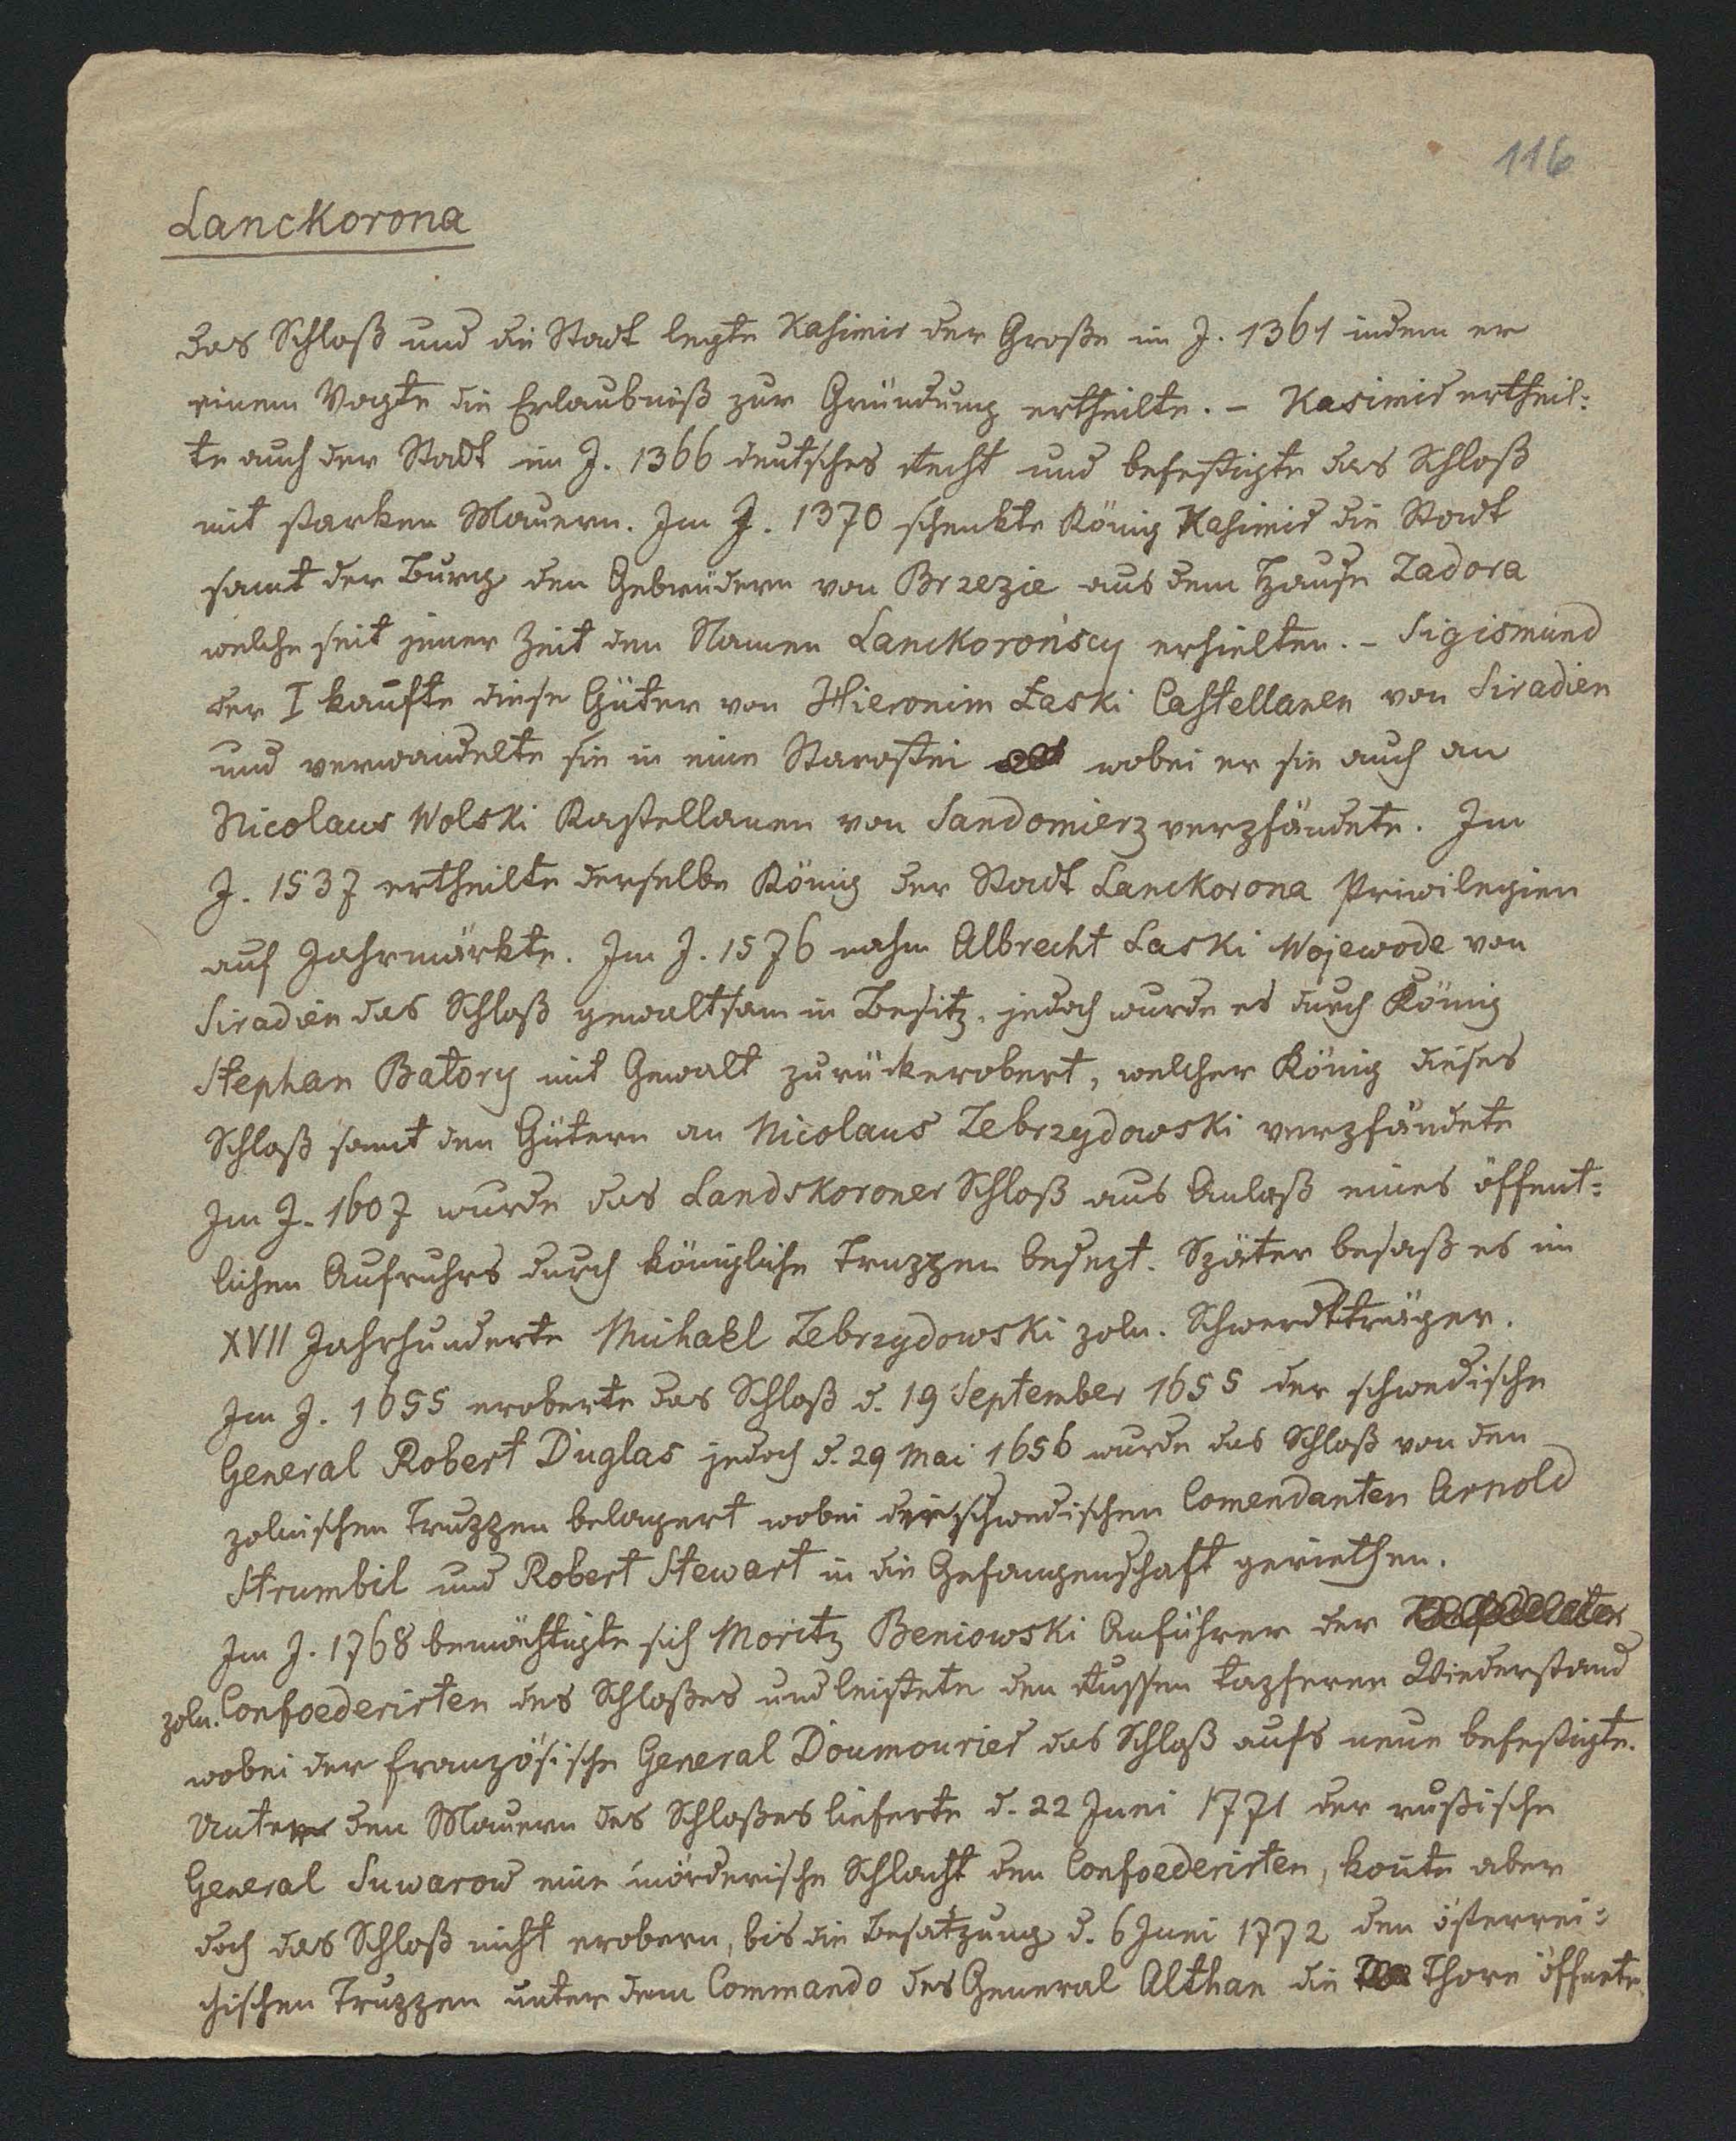 116
Lanckorona
Das Schloß und die Stadt legte Kasimir der Große im J. 1361 indem er
einem Vogte die Erlaubniß zur Gründung ertheilte. – Kasimir ertheil=
te auch der Stadt im J. 1366 deutsches Recht und befestigte das Schloß
mit starken Mauern. Im J. 1370 schenkte König Kasimir die Stadt
samt der Burg den Gebrüdern von Brzezie aus dem Hause Zadora
welche seit jener Zeit den Namen Lanckorońscy erhielten. – Sigismund
der I kaufte diese Güter von Hieronim Łaski Castellanen von Siradien
und verwandelte sie in eine Starostei wobei er sie auch an
Nicolaus Wolski Kastellanen von Sandomierz verpfändete. Im
J. 1537 ertheilte derselbe König der Stadt Lanckorona Privilegien
auf Jahrmärkte. Im J. 1576 nahm Albrecht Laski Wojewode von
Siradien das Schloß gewaltsam in Besitz, jedoch wurde es durch König
Stephan Batory mit Gewalt zurückerobert, welcher König dieses
Schloß samt den Gütern an Nicolaus Zebrzydowski verpfändete
Im J. 1607 wurde das Landskoroner Schloß aus Anlaß eines öffent=
lichen Aufruhrs durch königliche Truppen besezt. Später besaß es im
XVII Jahrhunderte Michael Zebrzydowski poln. Schwerdtträger.
Im J. 1655 eroberte das Schloß d. 19 September 1655 der schwedische
General Robert Duglas jedoch d. 29 Mai 1656 wurde das Schloß von den
polnischen Truppen belagert wobei die schwedischen Comendanten Arnold
Strumbil und Robert Stewart in die Gefangenschaft geriethen.
Im J. 1768 bemächtigte sich Moritz Beniowski Anführer der
poln. Confoederirten des Schloßes und leistete den Russen tapferen Wiederstand
wobei der französische General Doumourier das Schloß aufs neue befestigte.
Unter den Mauern des Schloßes lieferte d. 22 Juni 1771 der rußische
General Suwarow eine mörderische Schlacht den Confoederirten, konte aber
doch das Schloß nicht erobern, bis die Besatzung d. 6 Juni 1772 den österrei=
chischen Truppen unter dem Commando des General Althan die Thore öffnete.